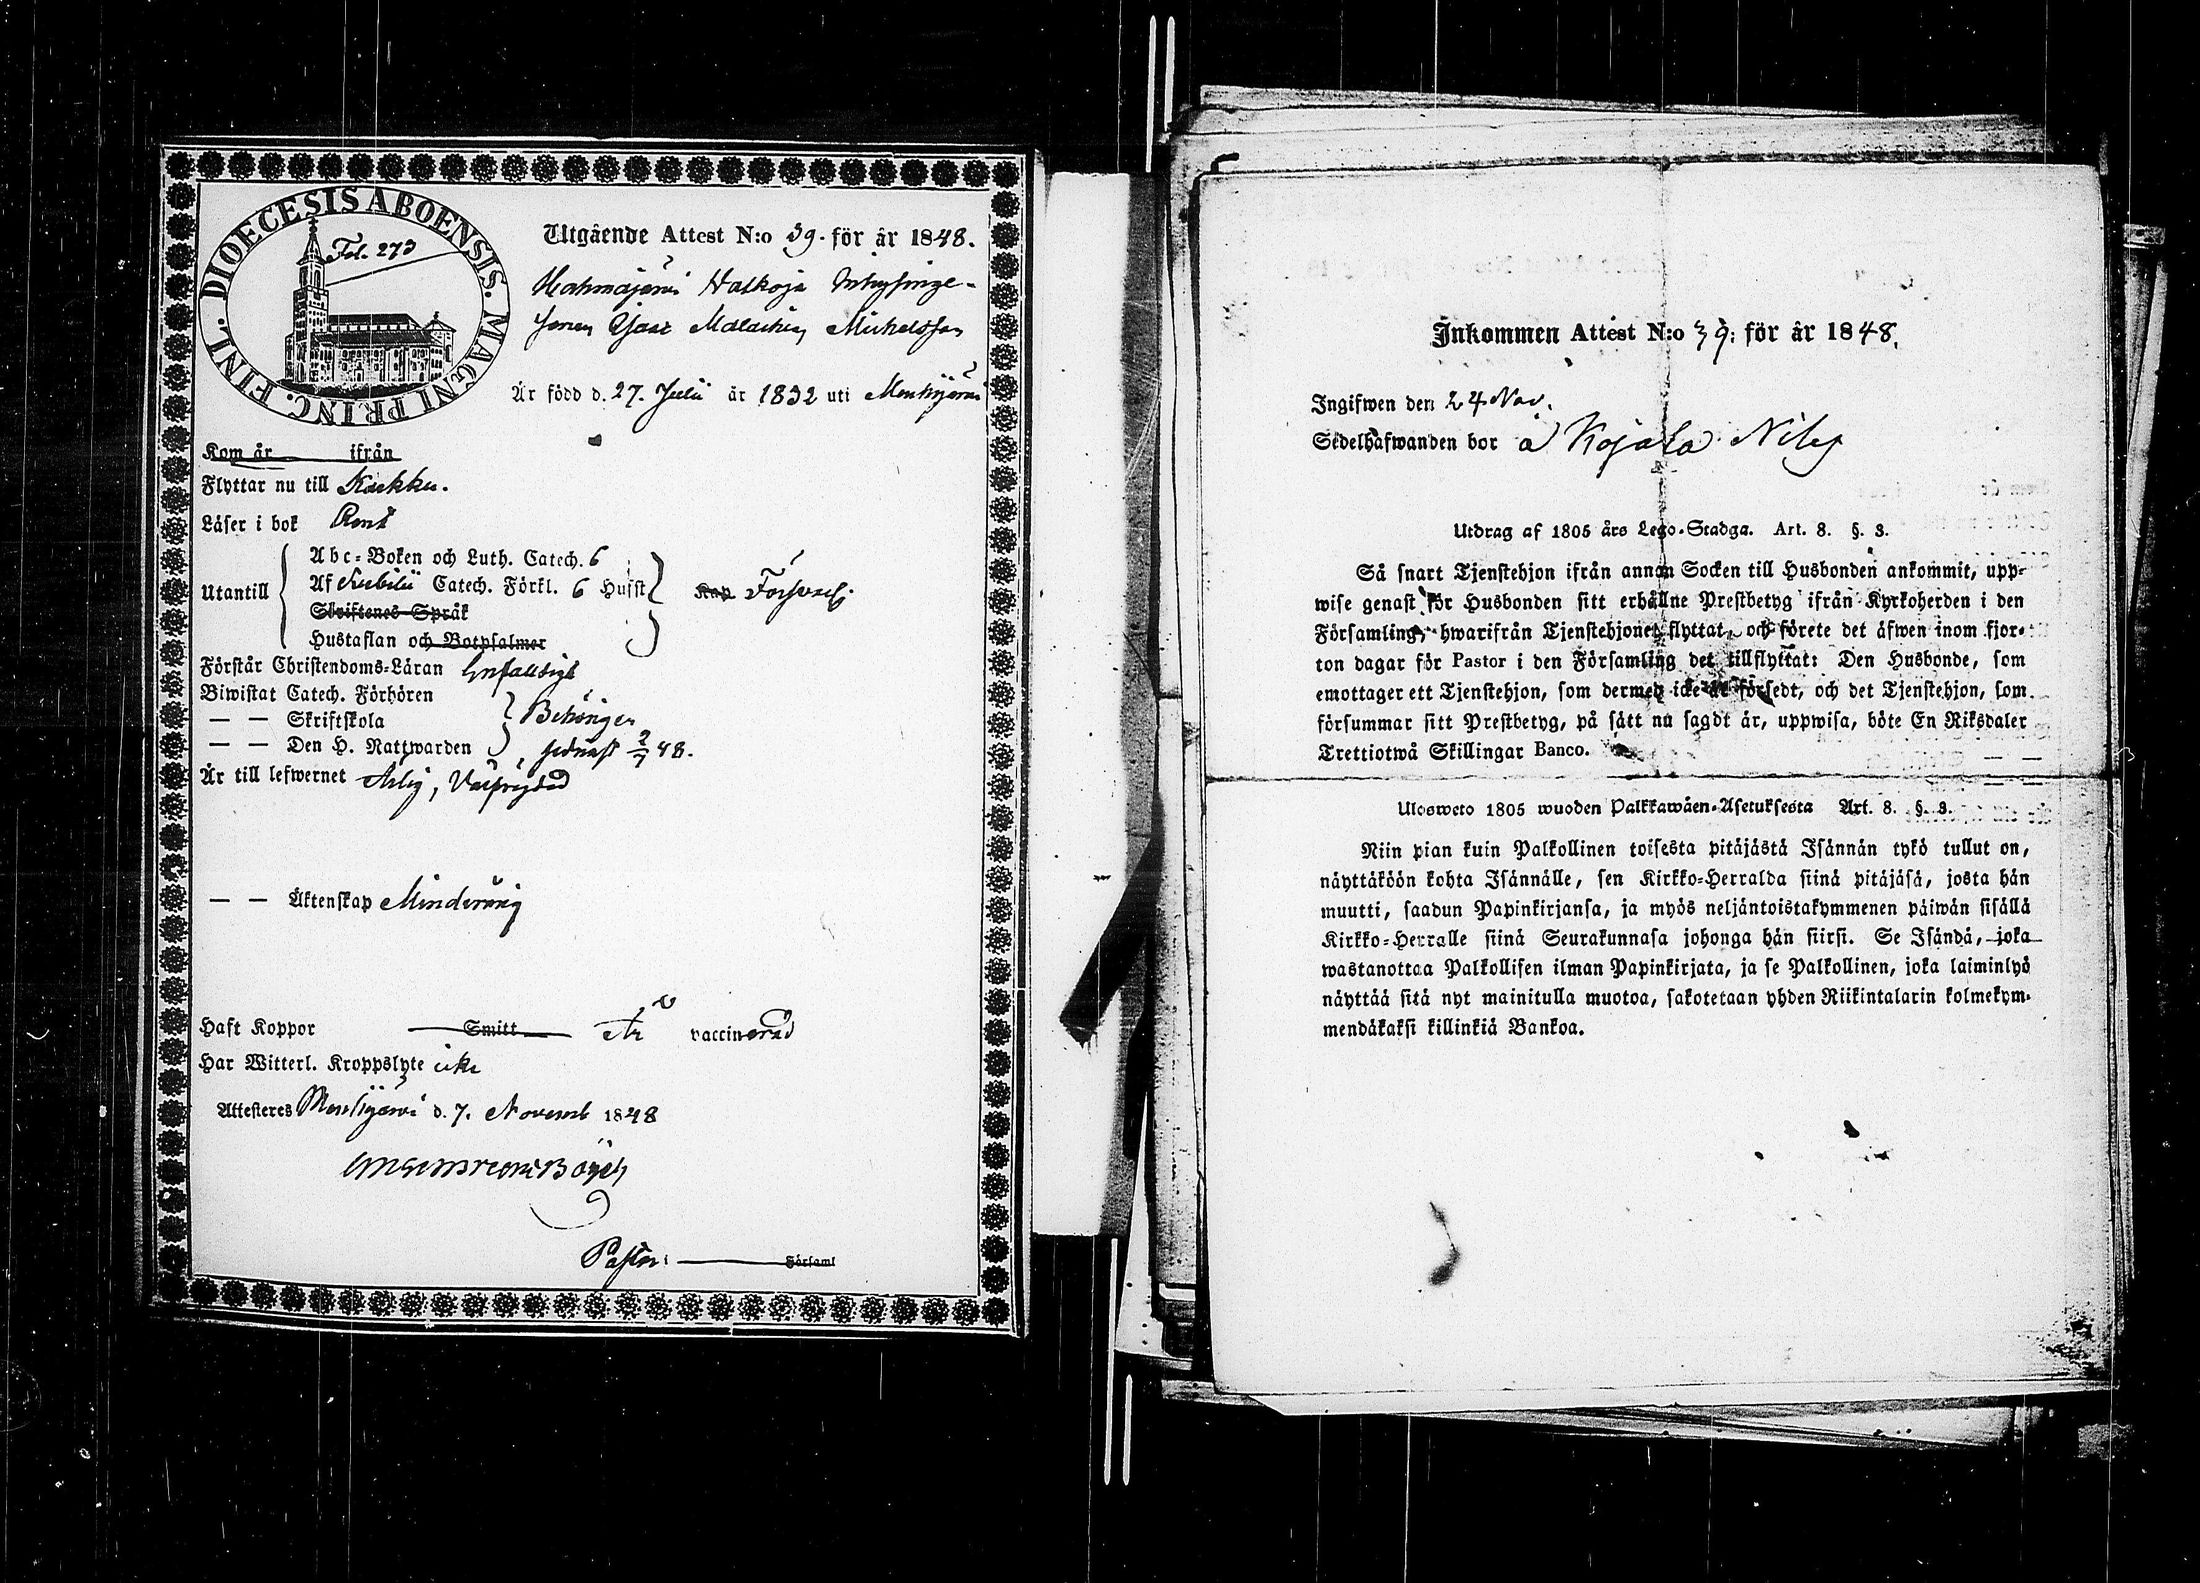 DIOECESIS ABOENSIS. MAGNI PRINC. FINL.
Fol. 273
Utgående Attest N:o 39. för år 1848.
Michelsson
Är född d. 27. Julii år 1832 uti Mouhijärvi
Kom år ifrån
Flyttar nu till Karkku.
Läser i bok Rent
Utantill
Abc-Boken och Luth. Catech. 6
Af Svebilii Catech. Förkl. 6 Husst
Kap Försvarl.
Skriftenes Språk
Hustaflan och Botpsalmer
Förstår Christendoms-Läran Enfaldigt
Biwistat Catech. Förhören
— — Skriftskola Behörigen
— — Den H. Nattwarden , sednast 2/7 48.
Är till lefwernet Ärlig, Välfrejdad
— — Äktenskap Minderårig
Haft Koppor Smitt Är vaccinerad
Har Witterl. Kroppslyte icke
Attesteres Mouhijärvi d. 7. Novemb 1848
Pastor: Församl
Inkommen Attest N:o 39: för år 1848.
Ingifwen den 24 Nov.
Sedelhafwanden bor å Kojola Nils
Utdrag af 1805 års Lego-Stadga. Art. 8. §. 3.
Så snart Tjenstehjon ifrån annan Socken till Husbonden ankommit, upp-
wise genast för Husbonden sitt erhållne Prestbetyg ifrån Kyrkoherden i den
Församling, hwarifrån Tjenstehjonet flyttat, och förete det äfwen inom fjor-
ton dagar för Pastor i den Församling det tillflyttat: Den Husbonde, som
emottager ett Tjenstehjon, som dermed icke är försedt, och det Tjenstehjon, som
försummar sitt Prestbetyg, på sätt nu sagdt är, uppwisa, böte En Riksdaler
Trettiotwå Skillingar Banco.
Ulosweto 1805 wuoden Palkkawäen-Asetuksesta Art. 8. §. 3.
Niin pian kuin Palkollinen toisesta pitäjästä Isännän tykö tullut on,
näyttäköön kohta Isännälle, sen Kirkko-Herralda siinä pitäjäsä, josta hän
muutti, saadun Papinkirjansa, ja myös neljäntoistakymmenen päiwän sisällä
Kirkko-Herralle siinä Seurakunnasa johonga hän siirsi. Se Isändä, joka
wastanottaa Palkollisen ilman Papinkirjata, ja se Palkollinen, joka laiminlyö
näyttää sitä nyt mainitulla muotoa, sakotetaan yhden Riikintalarin kolmekym-
mendäkaksi killinkiä Bankoa.